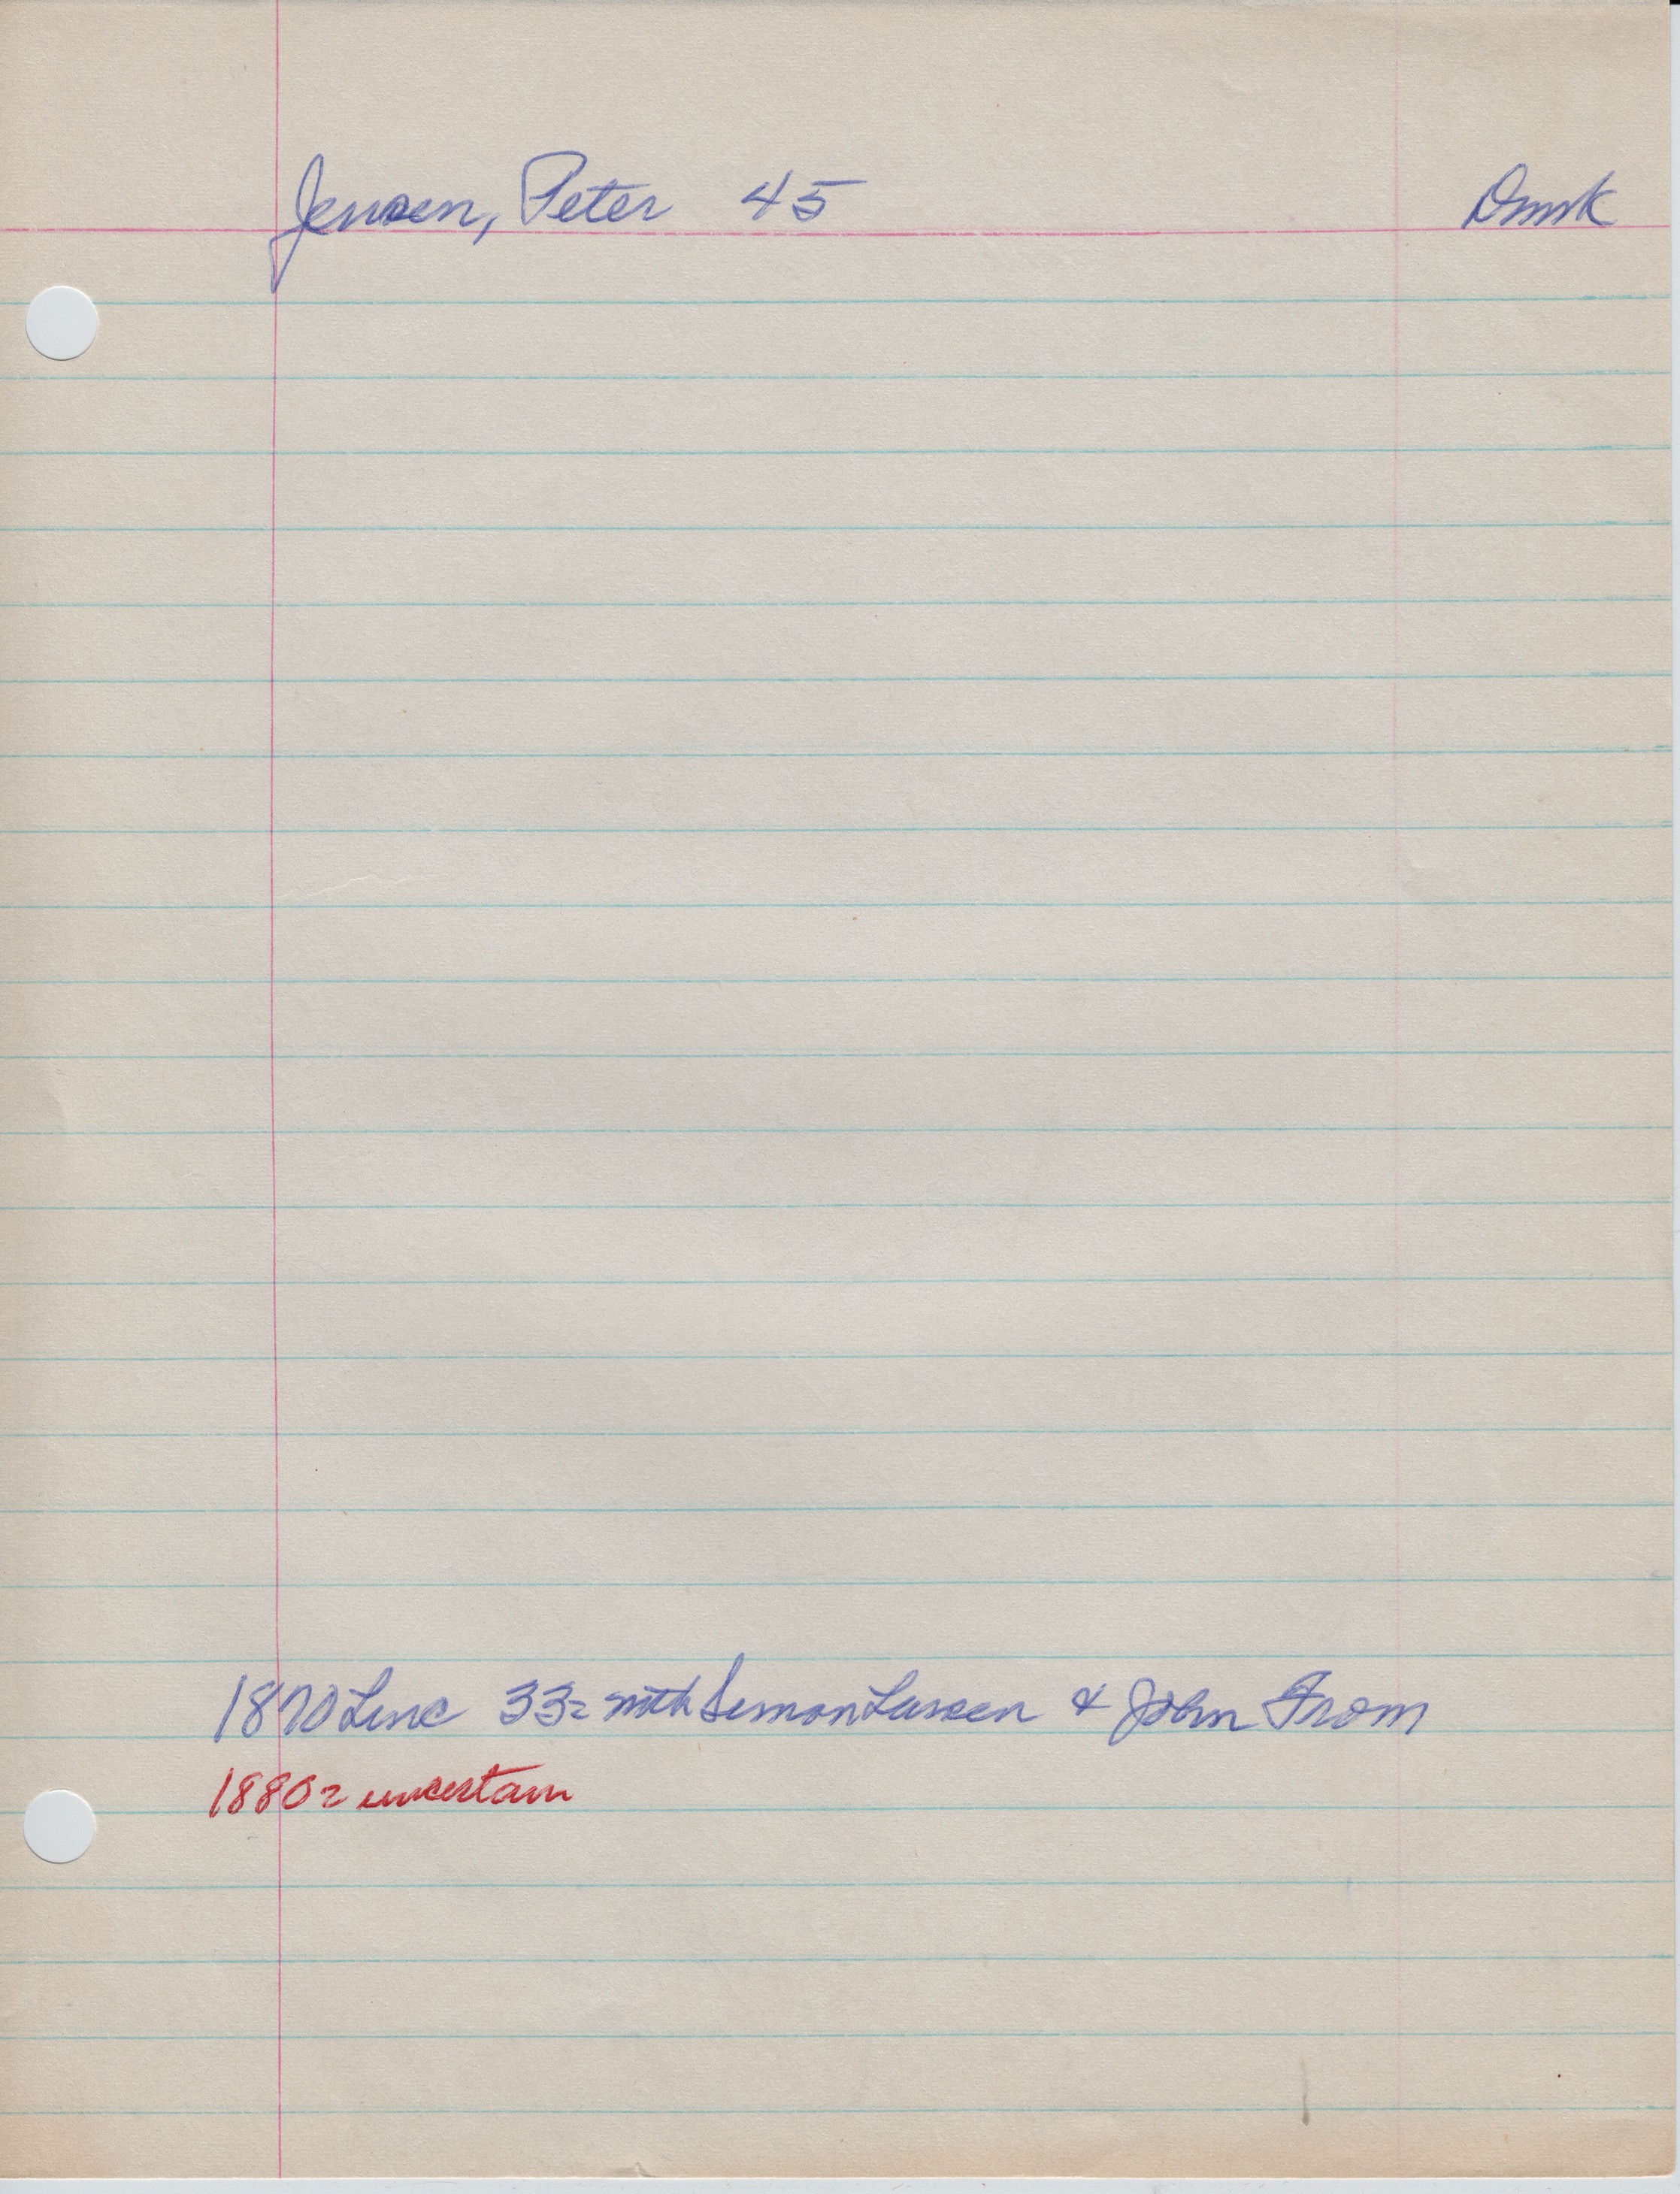 Jensen, Peter 45 Dmrk
1870 Linc 33= with Semon Larsen & John From
1880= uncertain